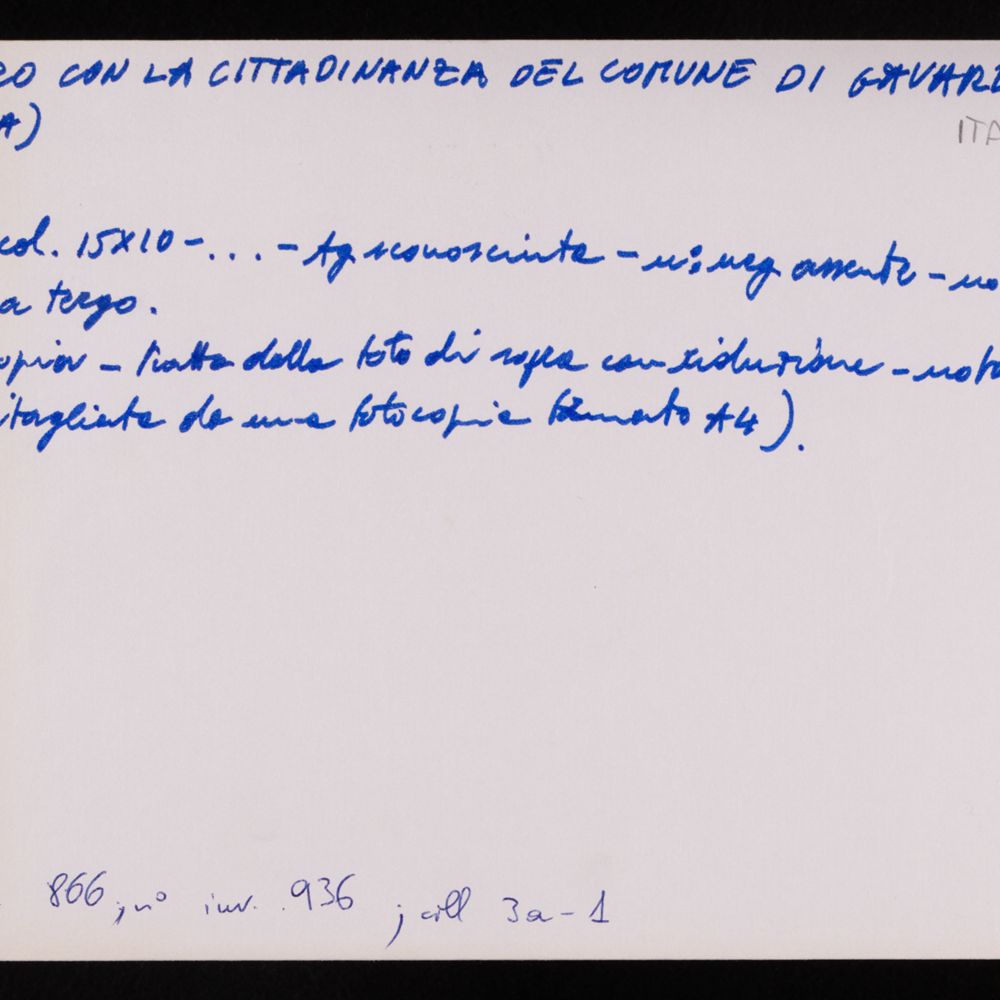 CO CON LA CITTADINANZA DEL COMUNE DI GAVARD
A)
ITA
col. 15X10 - ... - Ag sconosciuta - n: neg assente - no
a tergo.
opia - tratta dalla foto di sopra con riduzione - nota
itagliata da una fotocopia formato A4).
866 ; n° inv. 936 ; coll 3a-1